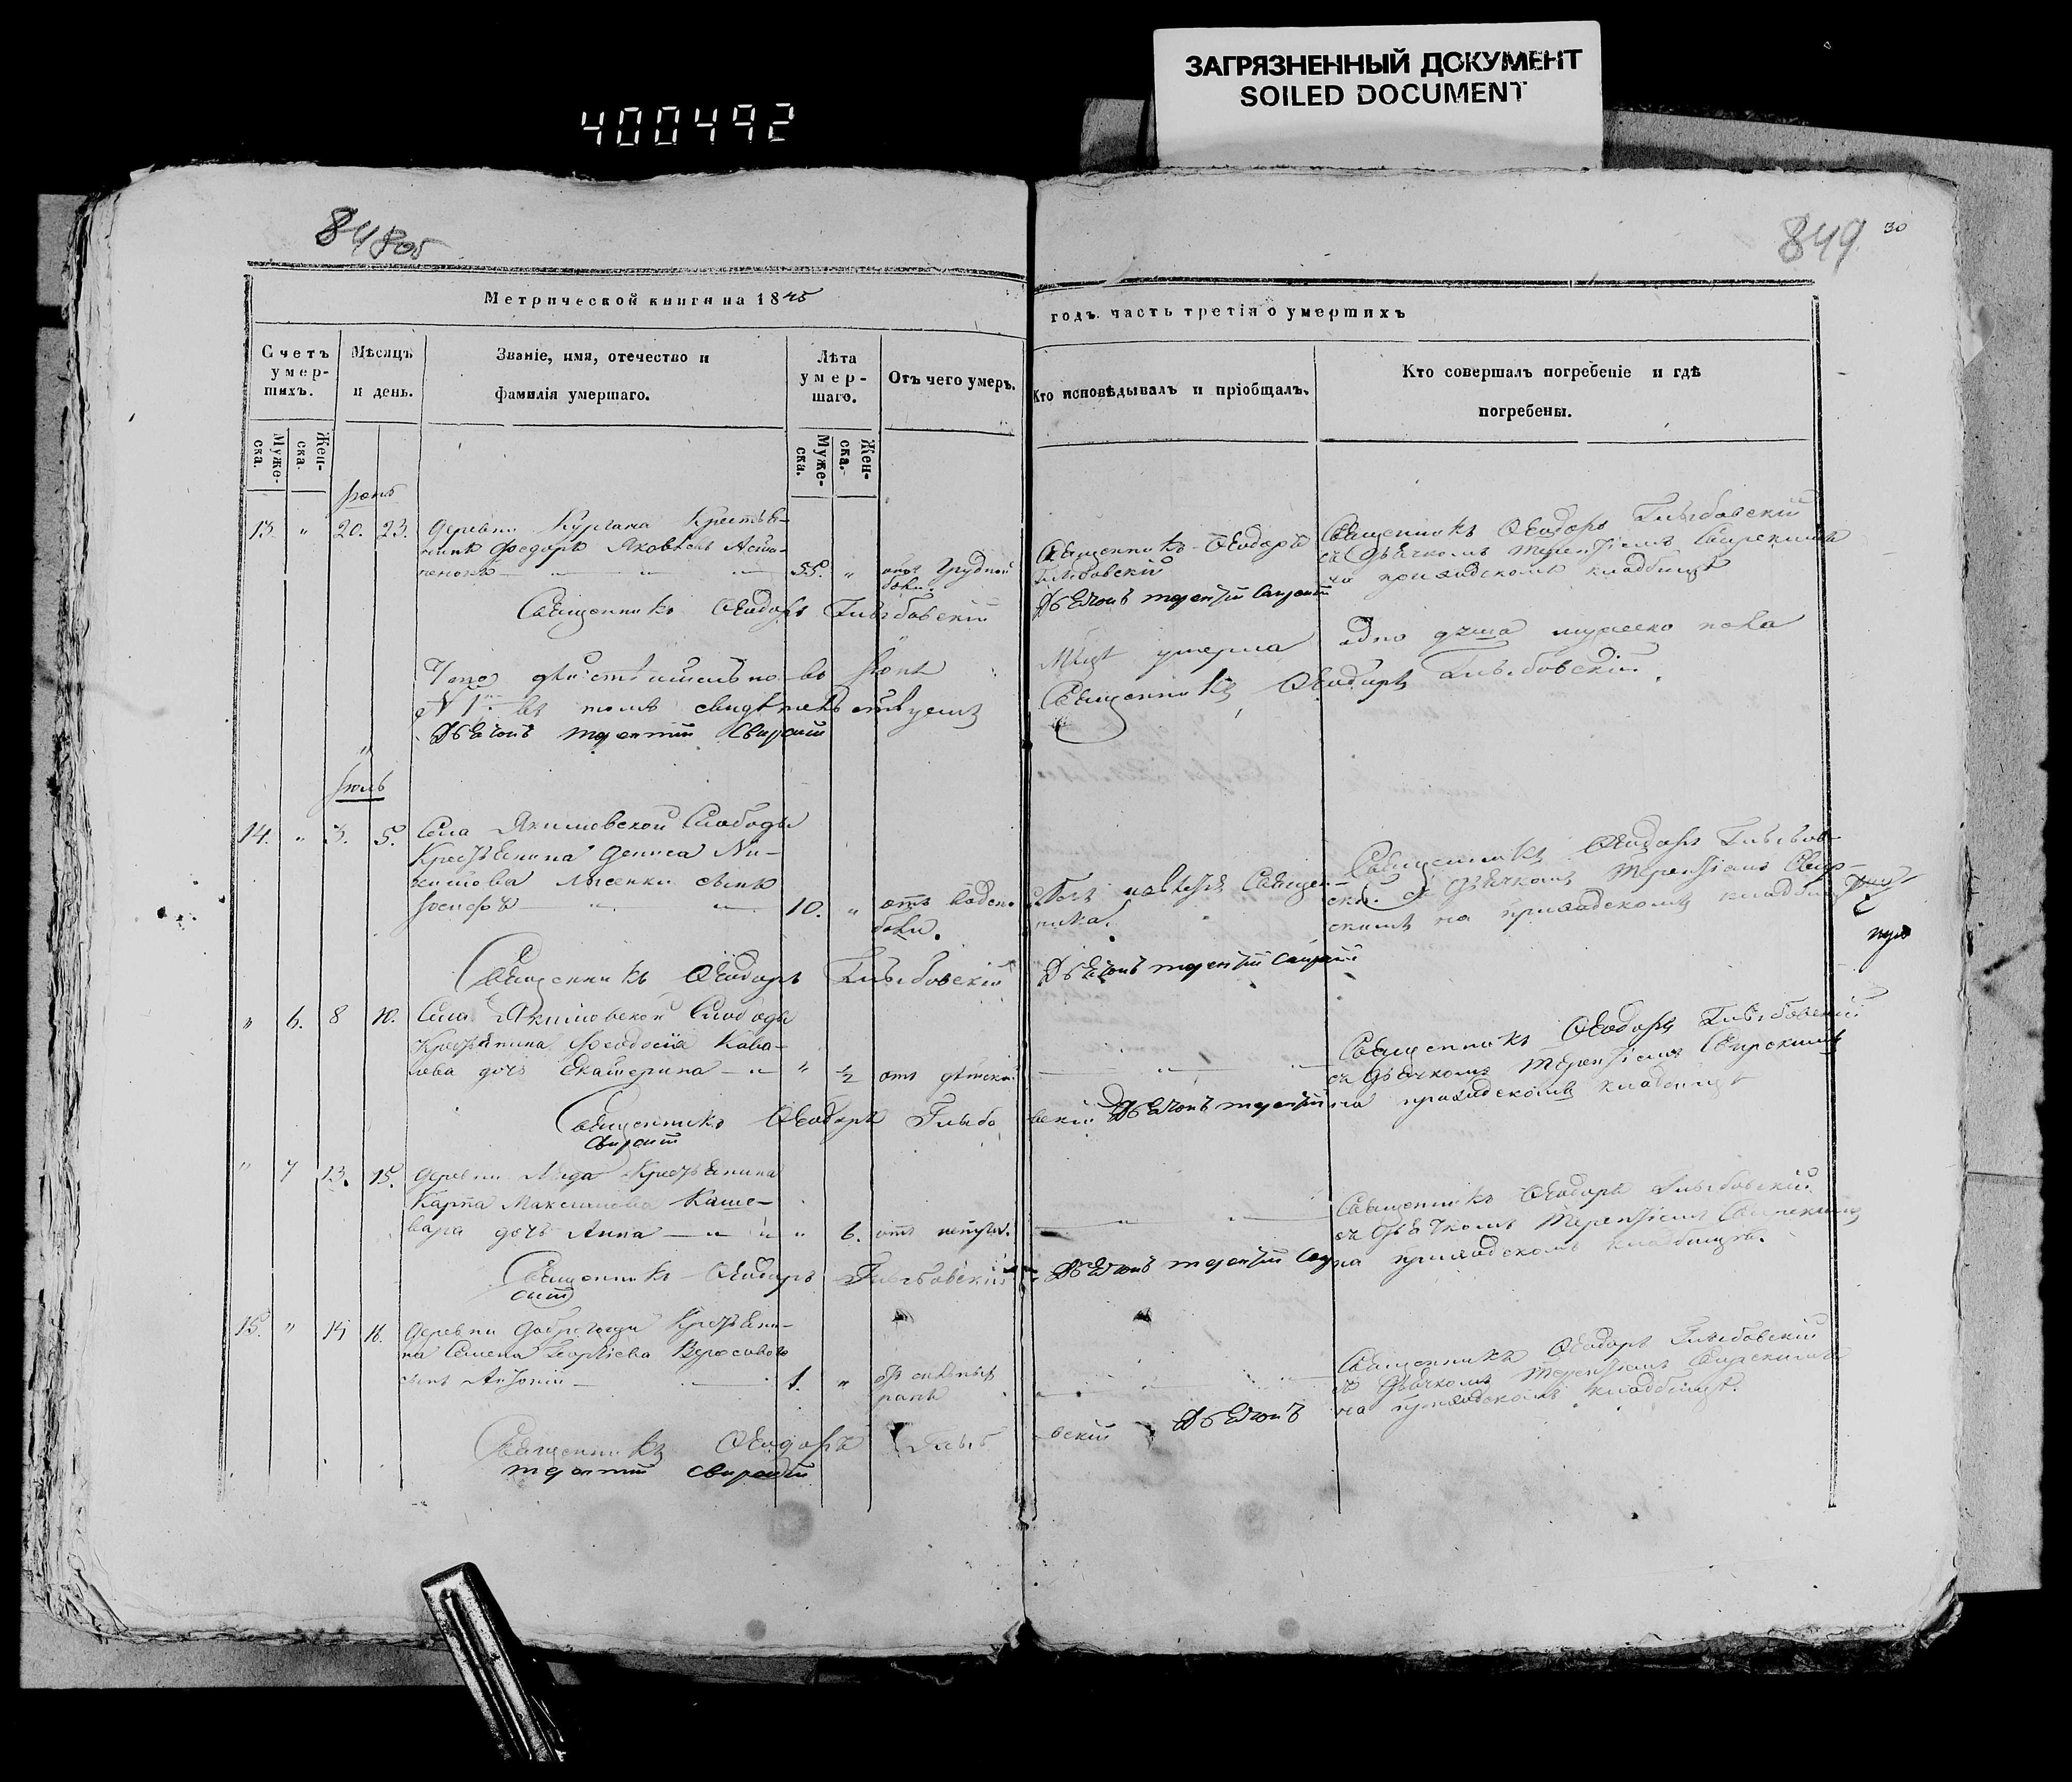 ЗАГРЯЗНЕННЫЙ ДОКУМЕНТ
SOILED DOCUMENT
400492
848об
849
30
Метрической книги на 1845
годъ часть третія о умершихъ
Счетъ умер-
шихъ.
Муже-
ска.
Жен-
ска.
Мѣсяцъ
и день.
Званіе, имя, отечество и
фамилія умершаго.
Лѣта
умер-
шаго.
Муже-
ска.
Жен-
ска.
Отъ чего умеръ.
Кто исповѣдывалъ и пріобщалъ.
Кто совершалъ погребеніе и гдѣ
погребены.
Іюнь
13. " 20. 23. Деревни Кургана Крестья-
нинъ Федоръ Яковлевъ
55. " отъ грудной
боли.
Священникъ Ѳеодоръ
Глыбовскій
Дьячокъ Терентій Свирскій
Священникъ Ѳеодоръ Глыбовскій
съ Дьячкомъ Терентіемъ Свирскимъ
на приходскомъ кладбищѣ
Священникъ Ѳеодоръ Глыбовскій
Что дѣйствительно въ Іюнѣ
Мцѣ умерла одна душа мужеска пола
въ томъ свидѣтельствуемъ
Священникъ Ѳеодоръ Глыбовскій.
Дьячокъ Терентій Свирскій
Іюль
14. " 3. 5. Села Якимовской Слободы
Крестьянина Дениса Ни-
китова Лысенки сынъ
Іосифъ 10. " отъ водено
боли.
Священ-
ника.
Священникъ Ѳеодоръ Глыбов-
скій съ Дьячкомъ Терентіемъ Свир-
скимъ на приходскомъ кладбищѣ
Священникъ Ѳеодоръ Глыбовскій
Дьячокъ Терентій Свирскій
" 6. 8 10. Села Якимовской Слободы
Крестьянина Ѳеодосія Кова-
лева дочь Екатерина " 1/2 отъ дѣтской
Священникъ Ѳеодоръ Глыбовскій
съ Дьячкомъ Терентіемъ Свирскимъ
на приходскомъ кладбищѣ
Священникъ Ѳеодоръ Глыбовскій Дьячокъ Терентій
Свирскій
" 7 13. 15. Деревни Крестьянина
Карпа Максимова Каше-
вара дочь Анна " 6. отъ
Священникъ Ѳеодоръ Глыбовскій
съ Дьячкомъ Терентіемъ Свирскимъ
на приходскомъ кладбищѣ.
Священникъ Ѳеодоръ Глыбовскій Дьячокъ Терентій Свир
скій
15. " 14 16. Деревни Крестьяни-
на Семена Георгіева
сынъ Антоній 1. "
Священникъ Ѳеодоръ Глыбовскій
съ Дьячкомъ Терентіемъ Свирскимъ
на приходскомъ кладбищѣ.
Священникъ Ѳеодоръ Глыбовскій Дьячокъ
Терентій Свирскій